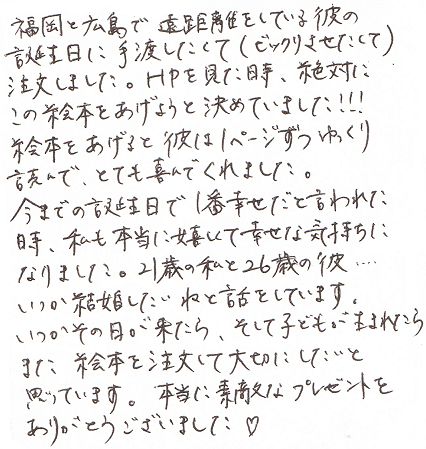 福岡と広島で 遠距離をしている彼の
誕生日に 手渡したくて(ビックリさせたくて)
注文しました。HPを見た時、絶対に
この絵本をあげようと決めていました!!!
絵本をあげると彼は1ページずつゆっくり
読んで、とても喜んでくれました。
今までの誕生日で1番幸せだと言われた
時、私も本当に嬉しくて幸せな気持ちに
なりました。21歳の私と26歳の彼‥‥
いつか結婚したいねと話をしています。
いつかその日が来たら、そして子どもが生まれたら
また 絵本を注文して大切にしたいと
思っています。本当に素敵なプレゼントを
ありがとうございました♡